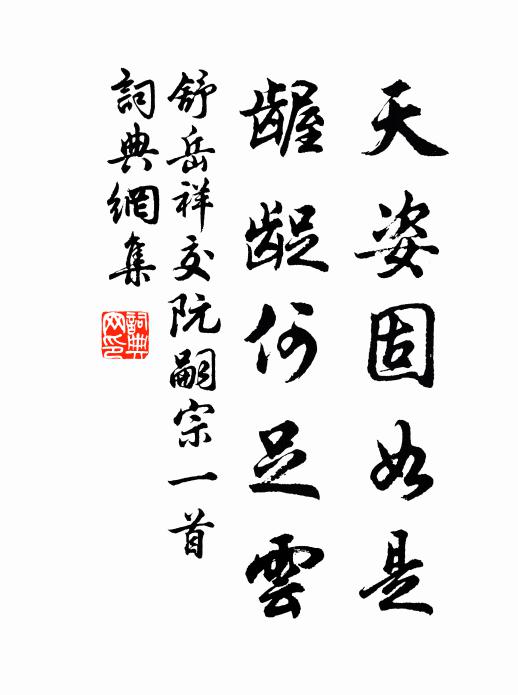 天姿固如是
齷齪何足雲
舒岳祥交阮嗣宗一首
詞典網集
詞典
网印